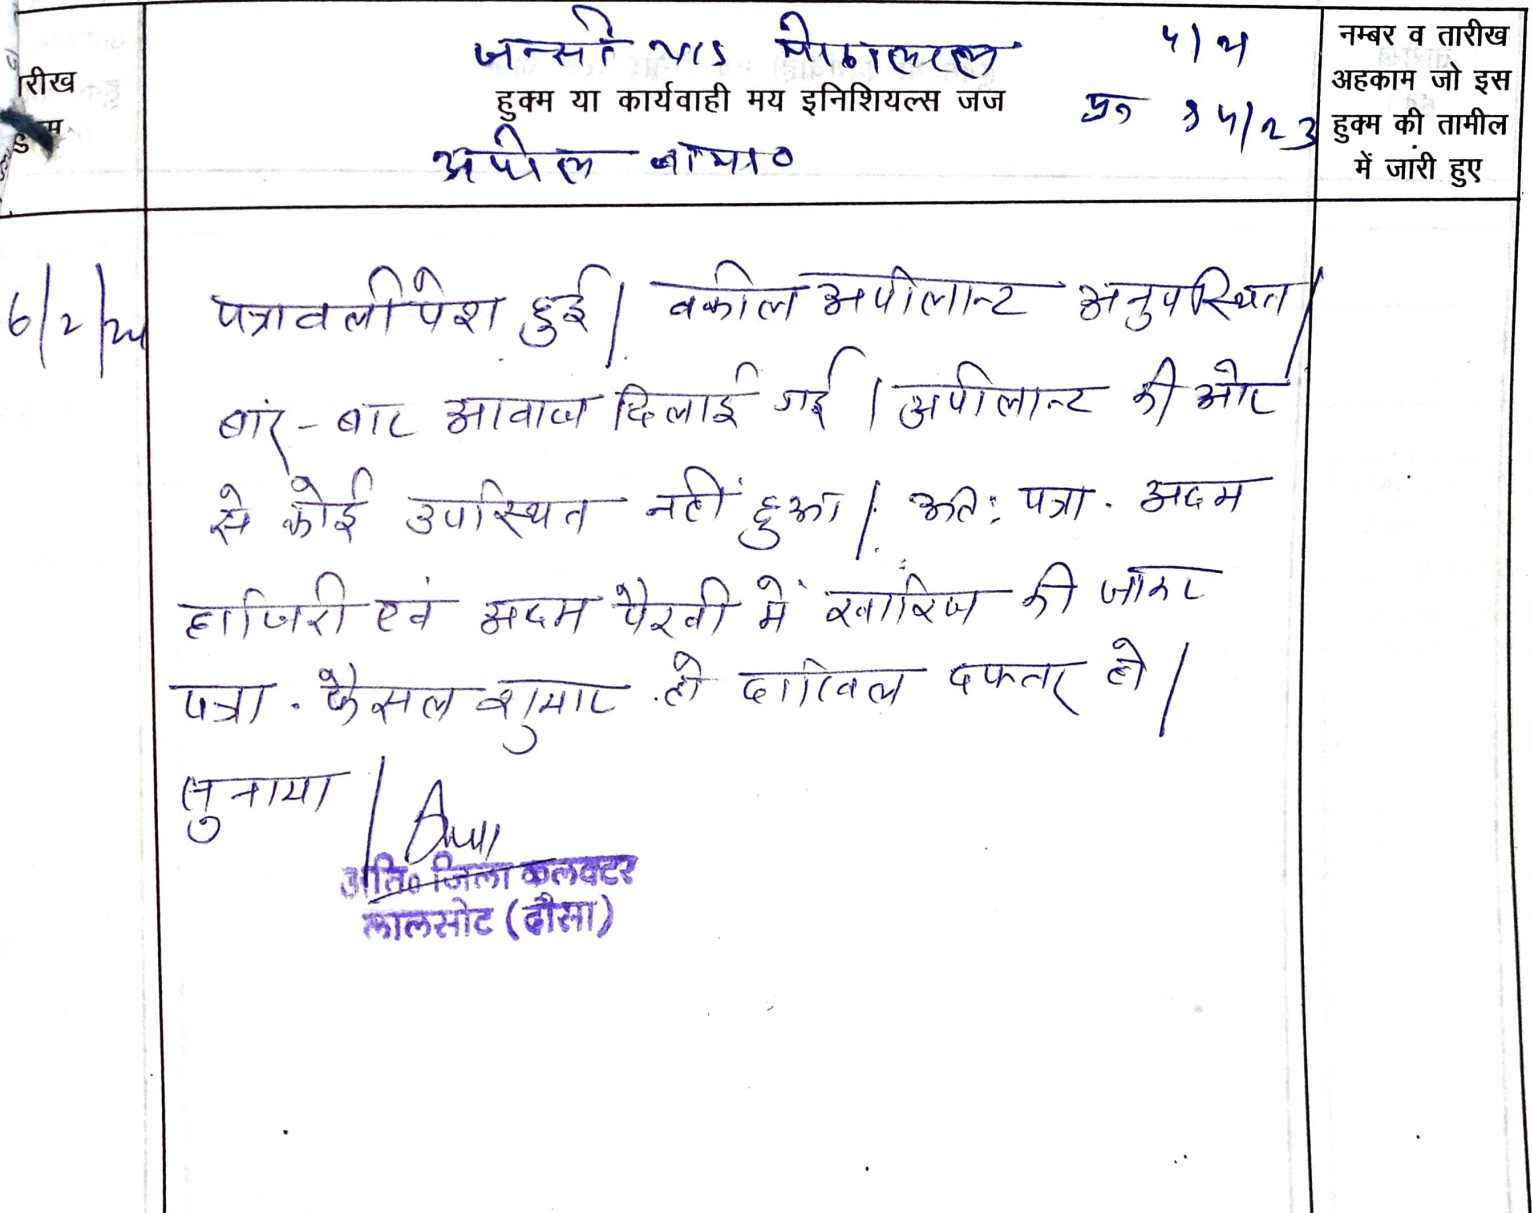 जन्सी v/s
रीख
हुक्म या कार्यवाही मय इनिशियल्स जज
अपील
नम्बर व तारीख
अहकाम जो इस
हुक्म की तामील
में जारी हुए
6/2/24 पत्रावली पेश हुई। वकील अपीलान्ट अनुपस्थित।
बार-बार आवाज दिलाई गई। अपीलान्ट की ओर
से कोई उपस्थित नहीं हुआ। अतः पत्रा. अदम
हाजिरी एवं अदम पैरवी में खारिज की जाकर
पत्रा. फैसल शुमार हो दाखिल दफतर हो।
सुनाया।
अति० जिला कलक्टर
लालसोट (दौसा)